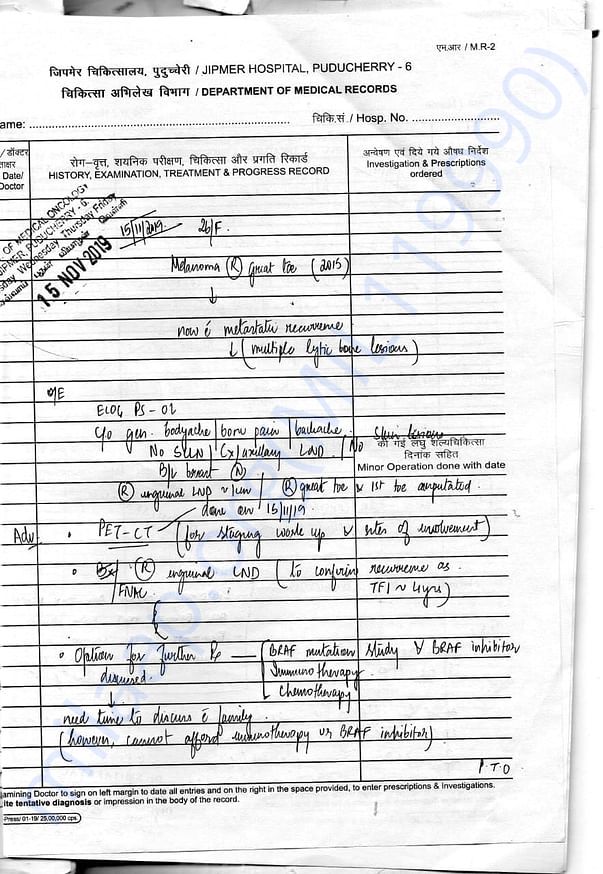 एम.आर / M.R-2
जिपमेर चिकित्सालय, पुदुच्चेरी / JIPMER HOSPITAL, PUDUCHERRY - 6
चिकित्सा अभिलेख विभाग / DEPARTMENT OF MEDICAL RECORDS
ame: चिकि.सं. / Hosp. No.
/ डॉक्टर
Date/
Doctor
रोग-वृत्त, शयनिक परीक्षण, चिकित्सा और प्रगति रिकार्ड
HISTORY, EXAMINATION, TREATMENT & PROGRESS RECORD
अन्वेषण एवं दिये गये औषध निर्देश
Investigation & Prescriptions
ordered
OF MEDICAL ONCOLOGY
JIPMER, PUDUCHERRY - 6.
Wednesday Thursday Friday
15 NOV 2019
15/11/2019. 26/F.
Melanoma (R) great toe (2015)
↓
now c̄ metastatic recurrence
↓ (multiple lytic bone lesions)
O/E
ECOG PS - 02
C/o gen. bodyache / bone pain / backache.
No SCLN / Cx / axillary LND / No skin lesions
की गई लघु शल्यचिकित्सा
दिनांक सहित
Minor Operation done with date
B/L breast (N)
(R) inguinal LND ~ 1cm / (R) great toe & 1st toe amputated.
done on 15/11/19.
Adv • PET-CT (for staging work up & sites of involvement)
• (R) inguinal LND (to confirm recurrence as
/FNAC. TFI ~ 4yrs)
• Options for further Rx — BRAF mutation study & BRAF inhibitor
discussed. Immunotherapy
Chemotherapy
↓
need time to discuss c̄ family.
(however, cannot afford immunotherapy or BRAF inhibitor)
P.T.O
amining Doctor to sign on left margin to date all entries and on the right in the space provided, to enter prescriptions & Investigations.
ite tentative diagnosis or impression in the body of the record.
Press/ 01-19/ 25,00,000 cps.